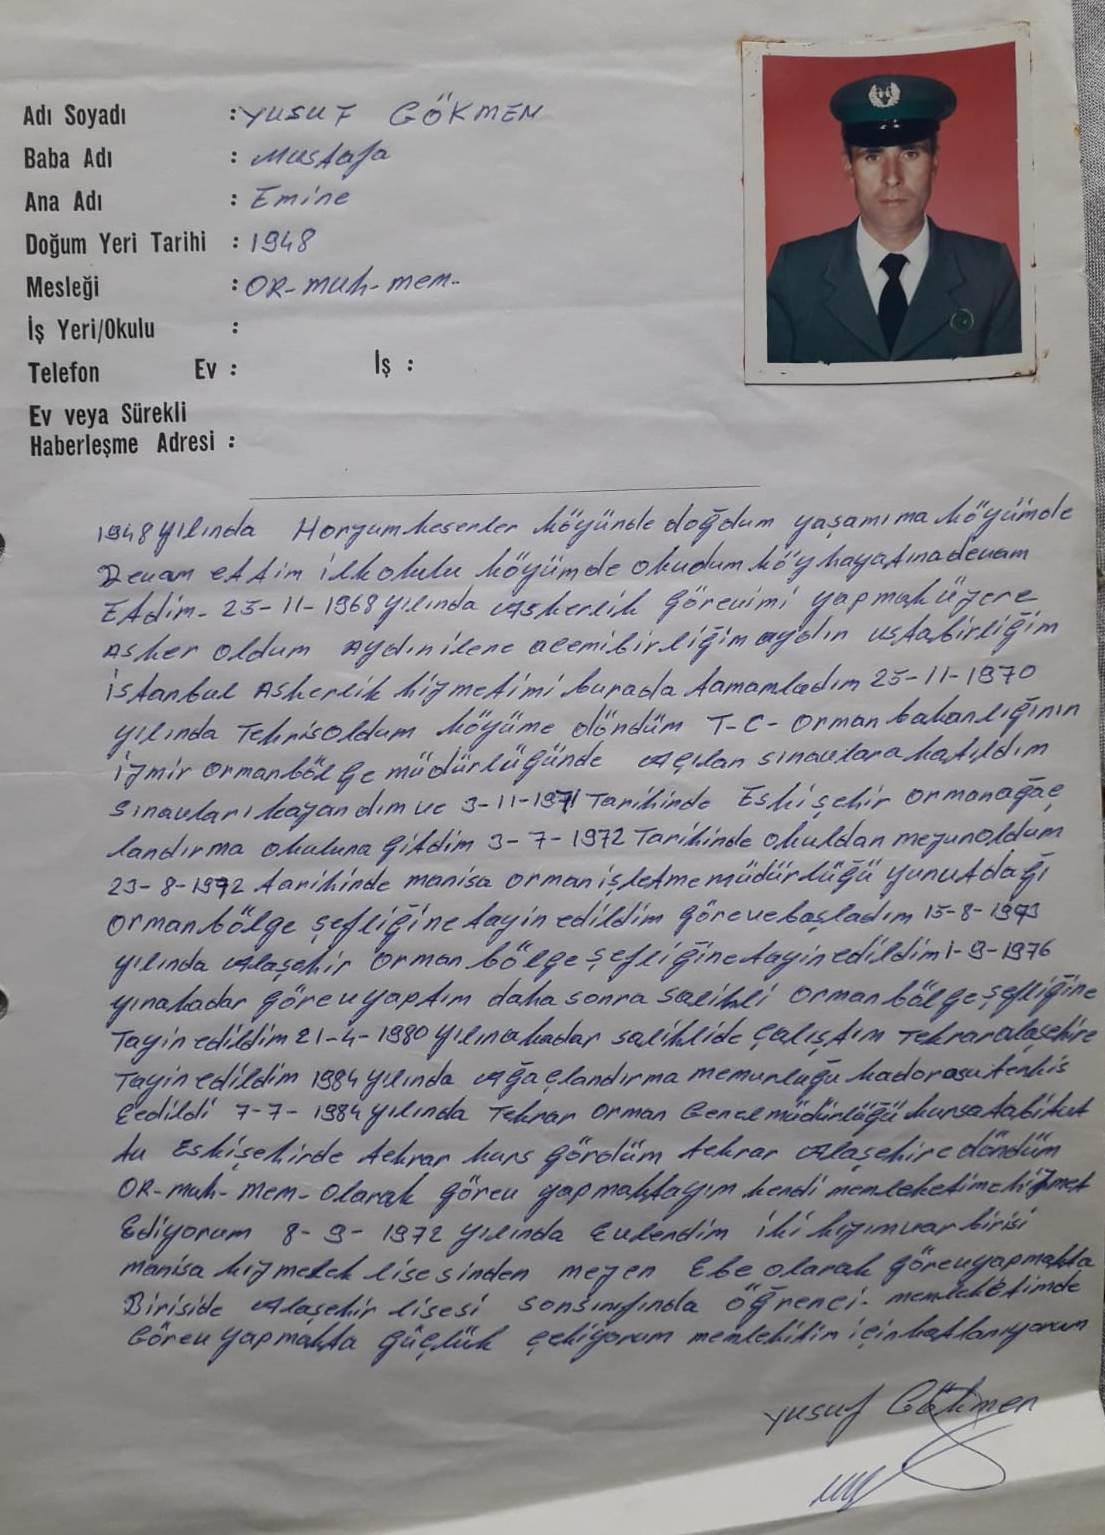 Adı Soyadı : YUSUF GÖKMEN
Baba Adı : Mustafa
Ana Adı : Emine
Doğum Yeri Tarihi : 1948
Mesleği : OR-muh-mem-
İş Yeri/Okulu :
Telefon Ev : İş :
Ev veya Sürekli
Haberleşme Adresi :
1948 yılında Horzumkeserler köyünde doğdum yaşamıma köyümde
Devam ettim ilkokulu köyümde okudum köy hayatına devam
Etdim- 23-11-1968 yılında Askerlik görevimi yapmak üzere
Asker oldum Aydın ilene acemibirliğim aydın ustabirliğim
istanbul Askerlik hizmetimi burada tamamladım 25-11-1970
yılında Tehrisoldum köyüme döndüm T-C- Orman bakanlığının
izmir orman bölge müdürlüğünde Açılan sınavlara katıldım
Sınavları kazandım ve 3-11-1971 Tarihinde Eskişehir orman ağaç
landırma okuluna gitdim 3-7-1972 Tarihinde okuldan mezun oldum
23-8-1972 tarihinde manisa orman işletme müdürlüğü yunutdağı
orman bölge şefliğine tayin edildim göreve başladım 15-8-1973
yılında Alaşehir orman bölge şefliğine tayin edildim 1-9-1976
yınakadar görev yaptım daha sonra salihli orman bölge şefliğine
Tayin edildim 21-4-1980 yılınakadar salihlide çalıştım Tekrar alaşehire
Tayin edildim 1984 yılında Ağaçlandırma memurluğu kadorosu tenkis
Eedildi 7-7-1984 yılında Tekrar orman Genel müdürlüğü kursa tabitut
tu Eskişehirde tekrar kurs gördüm tekrar Alaşehire döndüm
OR-muh-mem-olarak görev yapmaktayım kendi memleketime hizmet
Ediyorum 8-9-1972 yılında Evlendim iki kızım var birisi
manisa kız meslek lisesinden mezen Ebe olarak görev yapmakta
Biriside Alaşehir lisesi sonsınıfında öğrenci- memleketimde
Görev yapmakta güçlük çekiyorum memlekitim için katlanıyorum
yusuf Gökmen